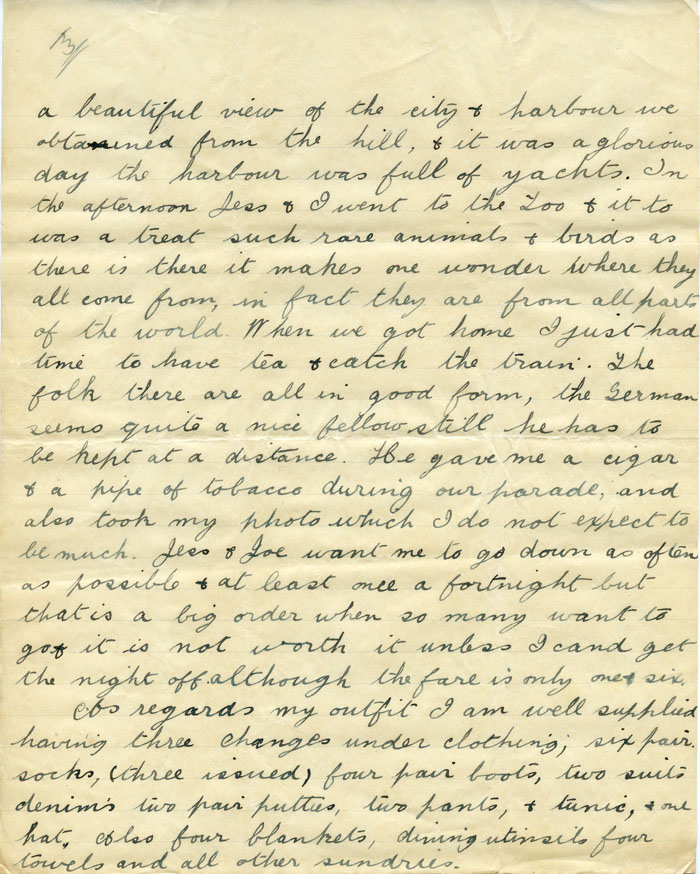 3/
a beautiful view of the city & harbour we
obtained from the hill, & it was a glorious
day the harbour was full of yachts. In
the afternoon Jess & I went to the Zoo & it to
was a treat such rare animals & birds as
there is there it makes one wonder where they
all come from, in fact they are from all parts
of the world. When we got home I just had
time to have tea & catch the train. The
folk there are all in good form, the German
seems quite a nice fellow still he has to
be kept at a distance. He gave me a cigar
& a pipe of tobacco during our parade, and
also took my photo which I do not expect to
be much. Jess & Joe want me to go down as often
as possible & at least once a fortnight but
that is a big order when so many want to
go & it is not worth it unless I cand get
the night off although the fare is only one & six.
As regards my outfit I am well supplied
having three changes under clothing, six pair
socks, (three issued) four pair boots, two suits
denims two pair putties, two pants, & tunic, & one
hat. Also four blankets, dining utinsils four
towels and all other sundries.